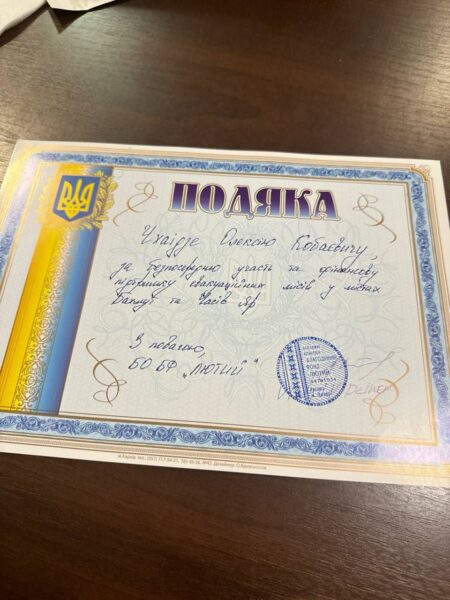 ПОДЯКА
Олексію Кобаєвичу,
за безпосередню участь та фінансову
підтримку евакуаційних місій у містах
Бахмут та Часів Яр
З повагою,
БО БФ „ЛЮТИЙ"
БЛАГОДІЙНИЙ
ФОНД